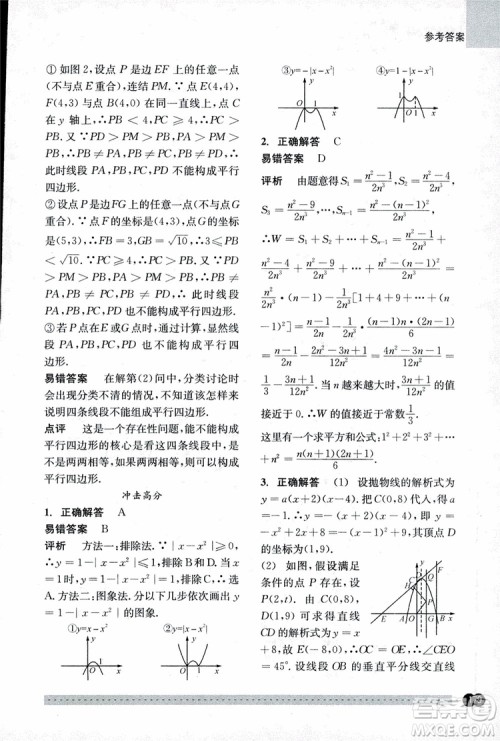 参考答案
① 如图 2，设点 P 是 BE 上的任意一点
(不与点 E 重合)，连结 PM. ∵点 E(4,4)，
F(4,3)与点 B(4,0)在同一直线上，点 C
在 y 轴上，∴PB＜4，PC≥4，∴PC＞
PB. 又∵PD＞PM＞PB，PA＞PM＞
PB，∴PB≠PC，PB≠PA，PB≠PD. ∴
此时线段 PA，PB，PC，PD 不能构成平行
四边形.
② 设点 P 是 FG 上的任意一点(不与点 G
重合). ∵点 F 的坐标是(4,3)，点 G 的坐标
是(5,3)，∴FB=3，GB=√10，∴3≤PB
＜√10. ∵PC≥4，∴PC＞PB. 又∵PD
＞PM＞PB，PA＞PM＞PB，∴PB≠
PA，PB≠PC，PB≠PD，∴ 此时线段
PA，PB，PC，PD 不能构成平行四边形.
③ 若点 P 不在以上范围内时，通过计算，
可得 PA，PB，PC，PD 不可能构成平行四
边形.
易错答案 在解第(2)问中，分类讨论时
会出现分类不清的情况，没有能在第 2 类
说明四条线段不能组成平行四边形.
点评 这是一个存在性问题，能否构成
平行四边形的核心是看这四条线段中，是
否能两两相等，如果两两相等，则它们能
构成平行四边形.
冲击高分
1. 正确解答 A
易错答案 B
评析 方法一：排除法. ∵|x−x²|≥0，
∴y=1−|x−x²|≤1，∴排除B和D. ∵
当 x=1 时，y=1−|x−x²|=1，∴排除 C，选
A. 方法二：图象法. 分以下几步依次画出 y
=1−|x−x²|的图象.
①y=x−x² ②y=|x−x²|
③y=−|x−x²| ④y=1−|x−x²|
2. 正确解答 C
易错答案 D
评析 由题意得 S₁=(n²−1)/2n³，S₂=(n²−4)/2n³，
S₃=(n²−9)/2n³，…，Sₙ₋₁=(n²−(n−1)²)/2n³，
∴W=S₁+S₂+…+Sₙ₋₁=(n²−1)/2n³+
(n²−4)/2n³+(n²−9)/2n³+…+(n²−(n−1)²)/2n³=
1/2n³[n²·(n−1)−1²−2²−…−(n−
1)²]=(n−1)/2n−(n−1)(2n−1)/12n²=
1/3−1/4n−1/12n². 当 n 越来越大时，1/4n+1/12n²接近
于 0. ∴W 的值接近于常数1/3. 故选 C.
这里有一个求平方和公式：1²+2²+3²+
…+n²=n(n+1)(2n+1)/6.
3. 正确解答 (1) 设抛物线的解析式为
y=a(x+2)(x−4)，把 C(0,8)代入，得 a
=−1. ∴y=−x²+2x+8，其顶点 D
的坐标为(1,9).
(2) 如图，假设满足
条件的点 P 存在，设
P(2,t). 由 C(0,8)，
D(1,9)可求得直线
CD 的解析式为 y=x
+8，∴E(−8,0)，∴OC=OE，∴∠CEO
=45°. 设线段 OB 的垂直平分线交直线